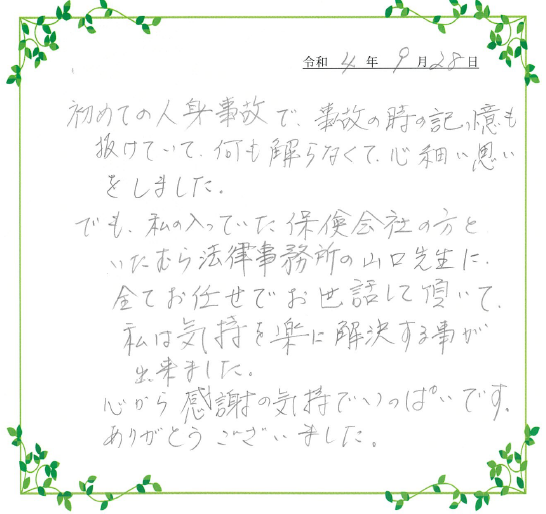 令和 4 年 9 月 28 日
初めての人身事故で、事故の時の記憶も
抜けていて、何も解らなくて、心細い思い
をしました。
でも、私の入っていた保険会社の方と
いたむら法律事務所の山口先生に、
全てお任せでお世話して頂いて、
私は気持を楽に解決する事が
出来ました。
心から感謝の気持でいっぱいです。
ありがとうございました。